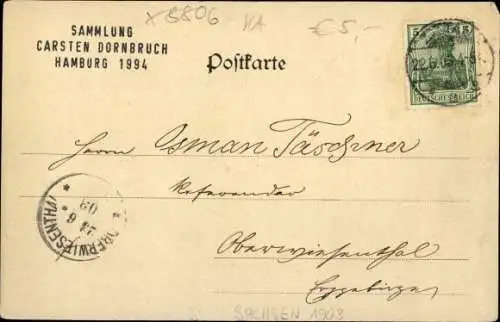 x5806 HA € 5,-
SAMMLUNG
CARSTEN DORNBRUCH
HAMBURG 1994
Postkarte
5 5
22.6.03
DEUTSCHES REICH
Herrn Osman Täschner
Referendar
Oberwiesenthal
Erzgebirge
OBERWIESENTHAL
23 6 03
SACHSEN 1903